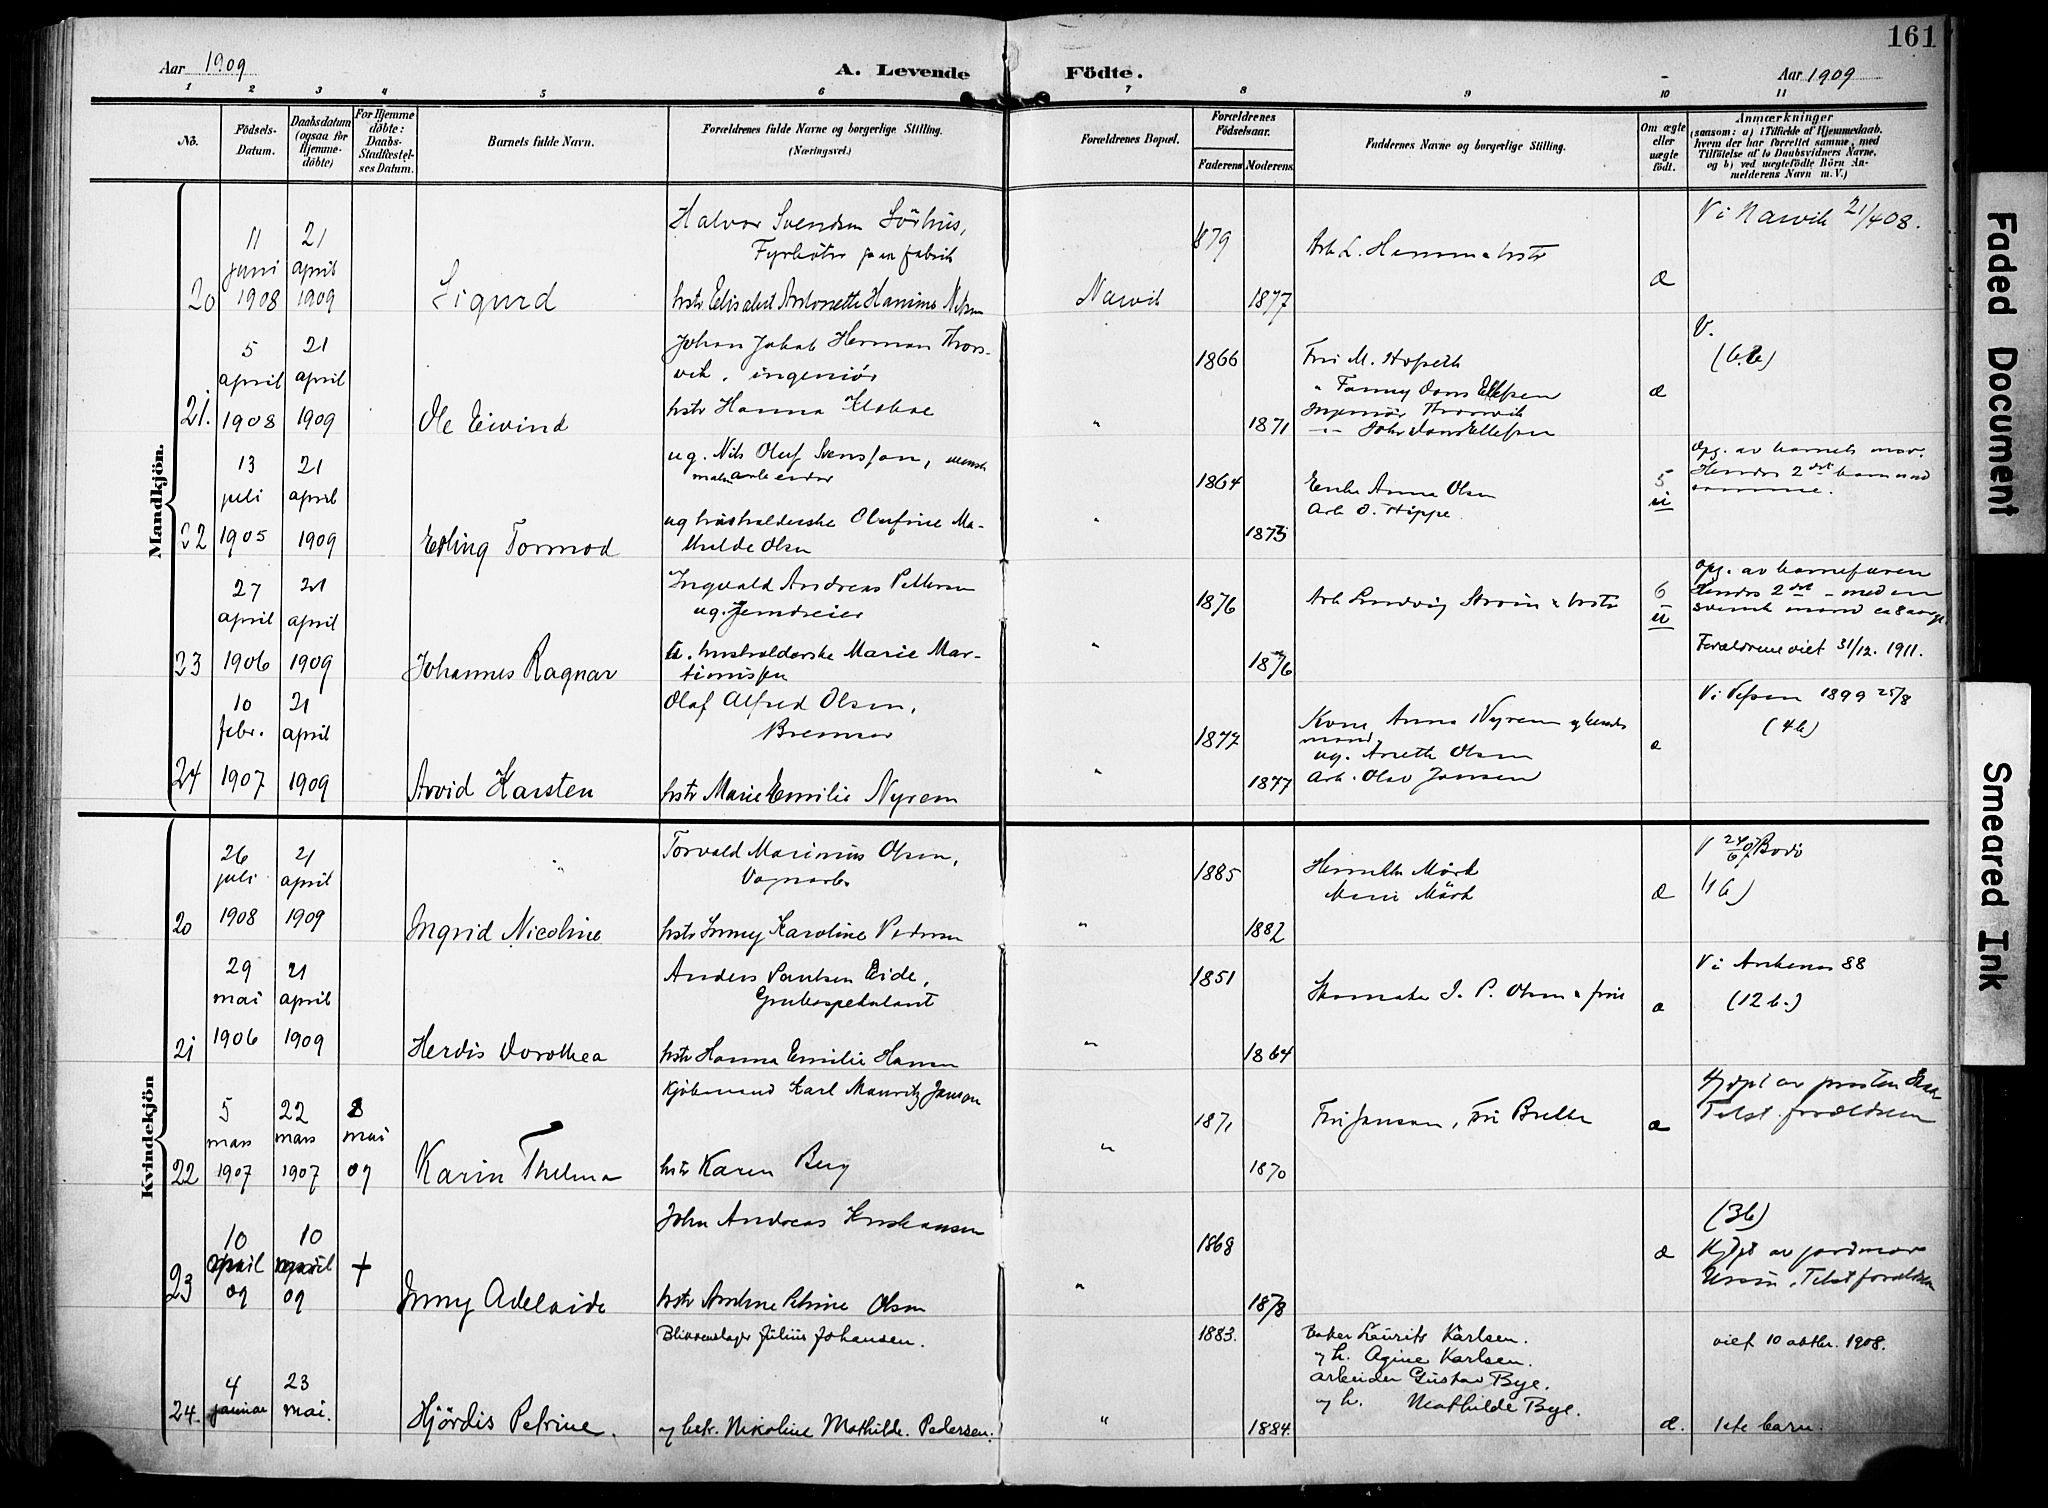 161
Aar 1909
A. Levende
Födte.
Aar 1909
1 2 3 4 5 6 7 8 9 10 11
No.
Födsels-
Datum.
Daabsdatum
(ogsaa for
Hjemme-
døbte)
For Hjemme
döbte:
Daabs-
Stadfæstel-
ses Datum.
Barnets fulde Navn.
Forældrenes fulde Navne og borgerlige Stilling.
(Næringsvei.)
Forældrenes Bopæl.
Forældrenes
Födselsaar.
Faderens Moderens
Faddernes Navne og borgerlige Stilling.
Om ægte
eller
uægte
födt.
Anmærkninger
(saasom: a) i Tilfælde af Hjemmedaab.
hvem der har forrettet samme, med
Tilföielse af to Daabsvidners Navne.
og b) ved uægtefödte Börn An-
melderens Navn m. V.)
Mandkjön.
20
11
juni
1908
21
april
1909
Sigurd
Halvor Svendsen Sörhus,
Fyrbøter paa fabrik
hstr Elisabet Antonette Hansine Nilsen
Narvik
1879
1877
Arb. L. Hemma hstr
æ
V i Narvik 21/4 08.
21.
5
april
1908
21
april
1909
Ole Eivind
Johan Jakob Herman Thors-
vik, ingeniør
hstr Hanna Klokoe
"
1866
1871
Fru M. Hofseth
" Fanny Dons Ellefsen
Ingeniør Thorsvik
-"- John Dons Ellefsen
æ
V.
22
13
juli
1905
21
april
1909
Erling Tormod
ug. Nils Oluf Svensson, svensk
malmarbeider
ug husholderske Olufine Ma-
thilde Olsen
"
1864
1873
Enke Anna Olsen
Arb O. Hippe.
5
u
Opg. av barnets mor.
Hendes 2det barn med
samme.
23
27
april
1906
21
april
1909
Johannes Ragnar
Ingvald Andreas Pettersen
ug. Jerndreier
u. husholderske Marie Mar-
tinussen
"
1876
1876
Arb Ludvig Strøm & hstr
6
u
Opg. av barnefaren
Hendes 2det - med en
svensk mand ca 8 aar gl.
Forældrene viet 31/12. 1911.
24
10
febr.
1907
21
april
1909
Arvid Karsten
Olaf Alfred Olsen,
Bremser
hstr Marie Emilie Nyrem
"
1877
1877
Kone Anna Nyrem og hendes
mand
ug. Anette Olsen
Arb. Olav Jansen
æ
V i Vefsen 1899 25/8
(4b)
Kvindekjön
20
26
juli
1908
21
april
1909
Ingrid Nicoline
Torvald Marinius Olsen,
Vognarb.
hstr Jenny Karoline Pedersen
"
1885
1882
Henrikke Mörk
Marie Mörk
æ
V 24/6 07 Bodö
(1b)
21
29
mai
1906
21
april
1909
Herdis Dorothea
Anders Paulsen Eide,
Grubespekulant
hstr Hanna Emilie Hansen
"
1851
1864
Skomaker J. P. Olsen & frue
æ
V i Ankenes 88
(12 b.)
22
5
mars
1907
22
mars
1907
8
mai
09
Karin Thelma
Kjöbmand Karl Mauritz Jansson
hstr Karen Berg
"
1871
1870
Fru Jansson, Fru Brekke
æ
Hjdpt av presten
Tilst. forældrene
23
10
april
09
10
april
09
+
Jenny Adelaide
John Andreas Kristiansen
hstr Andrine Petrine Olsen
"
1868
1878
æ
(3b)
Hjdpt av jordmor
Ursin. Tilst forældrene
24.
4
januar
23
mai.
Hjördis Petrine.
Blikkenslager Julius Johansen.
og hstr. Nikoline Mathilde. Pedersen.
"
1883.
1884.
Baker Laurits Karlsen.
og h. Agine Karlsen.
arbeider Gustav Bye.
og h. Mathilde Bye.
æ.
viet 10 oktbr. 1908.
1ste barn.
Faded Document
Smeared Ink